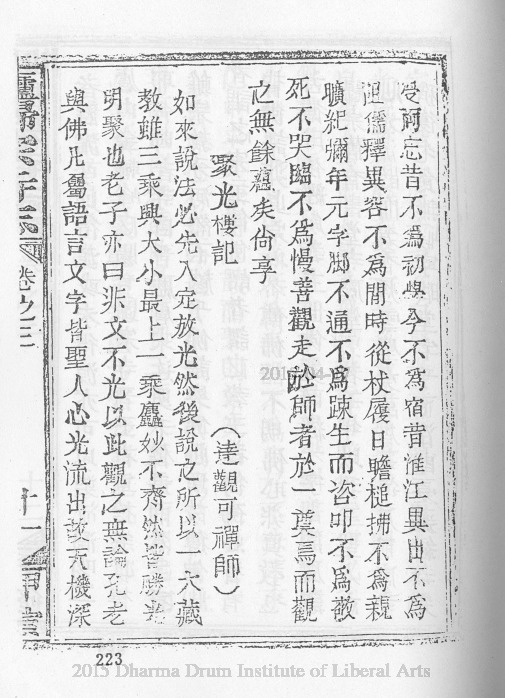 受而忘昔不為初喚今不為宿昔淮江異出不為
阻儒釋異容不為間時從杖屨日瞻槌拂不為親
曠紀彌年元字脚不通不為疎生而咨叩不為敬
死不哭臨不為慢善觀走於師者於一奠焉而觀
之無餘蘊矣尚享
聚光樓記
（達觀可禪師）
如來說法必先入定放光然後說之所以一大藏
教雖三乘興大小最上一乘麤妙不齊然皆勝光
明聚也老子亦曰非文不光以此觀之無論孔老
與佛凡屬語言文字皆聖人心光流出故天機深
卷之三
十一
223
2015 Dharma Drum Institute of Liberal Arts